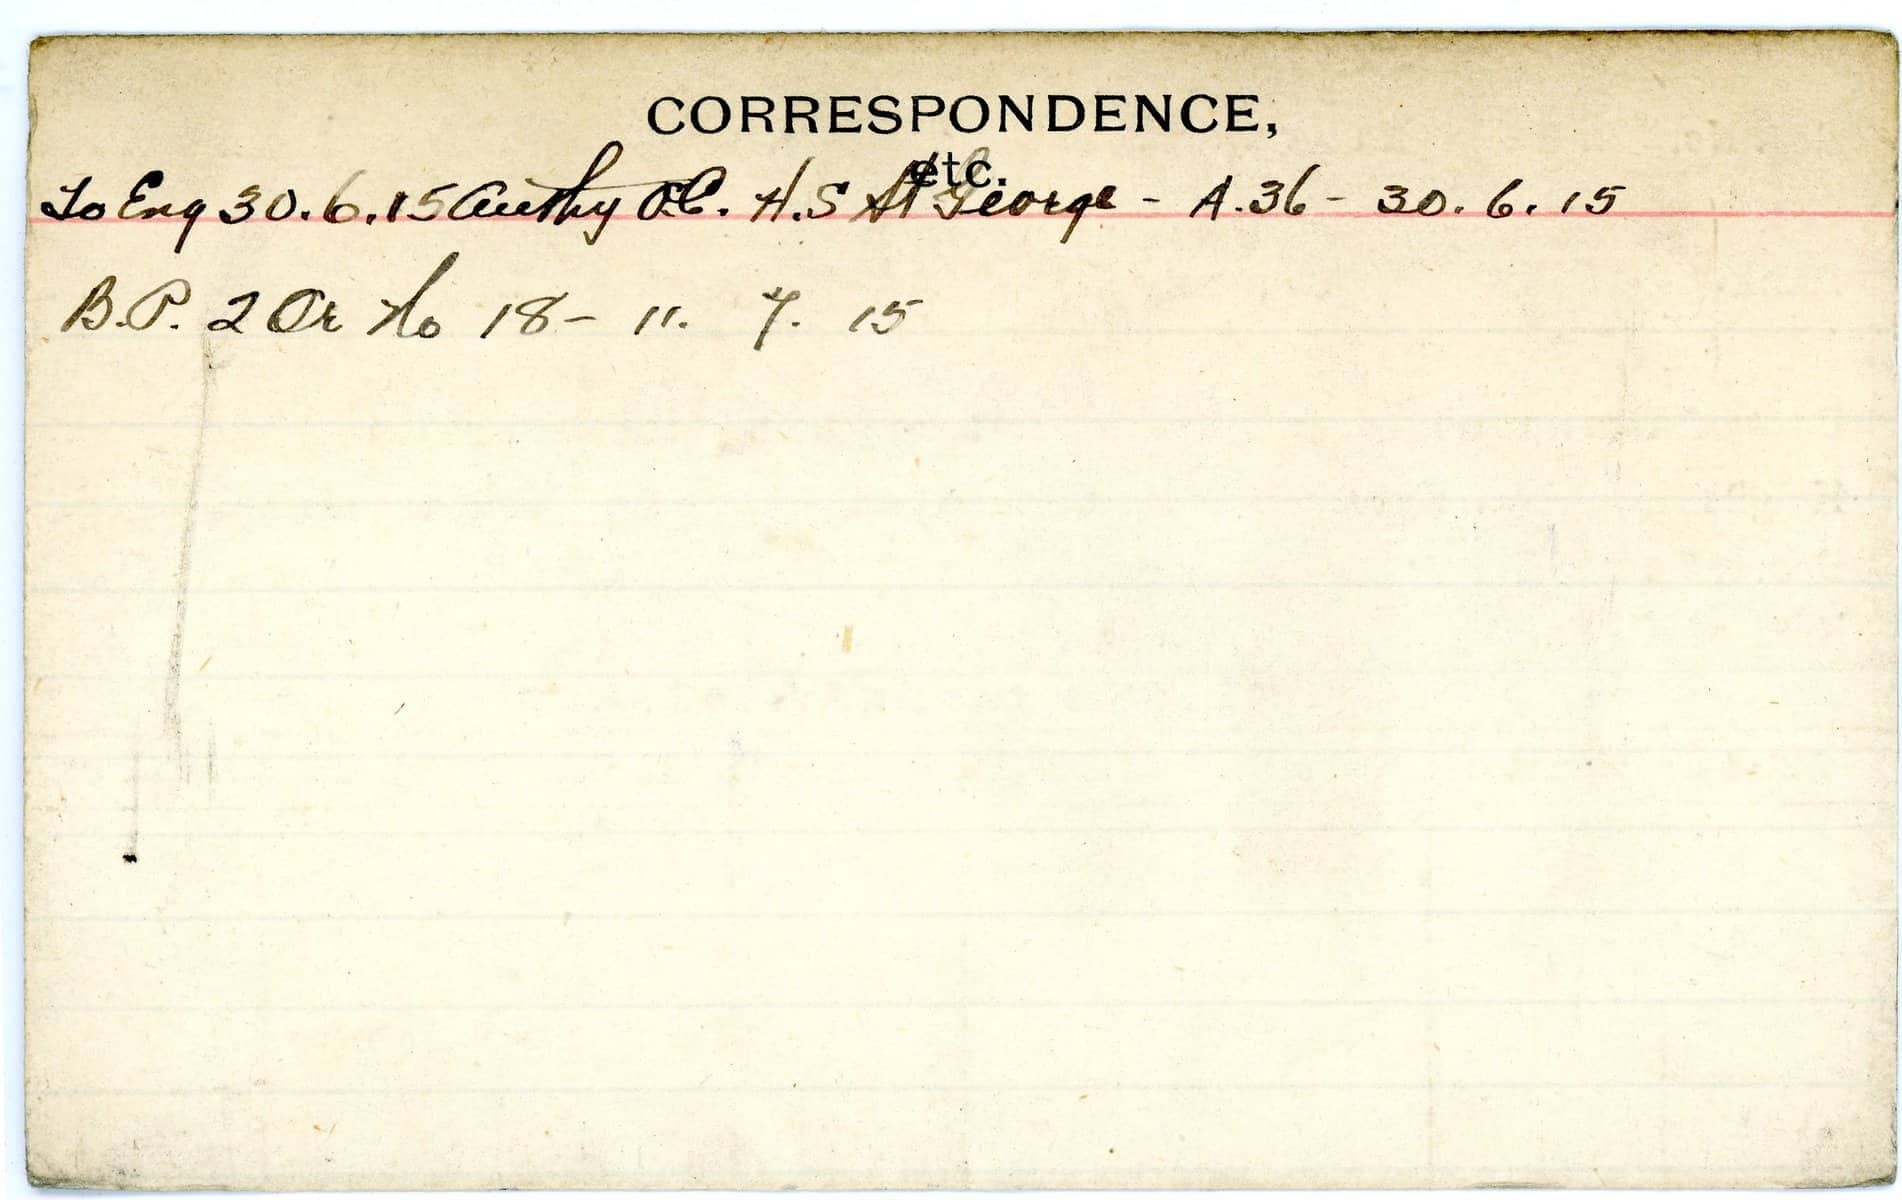 CORRESPONDENCE,
etc.
To Eng 30.6.15 Authy O.C. H.S St George - A.36 - 30.6.15
B.P. 2 Or No 18 - 11. 7. 15